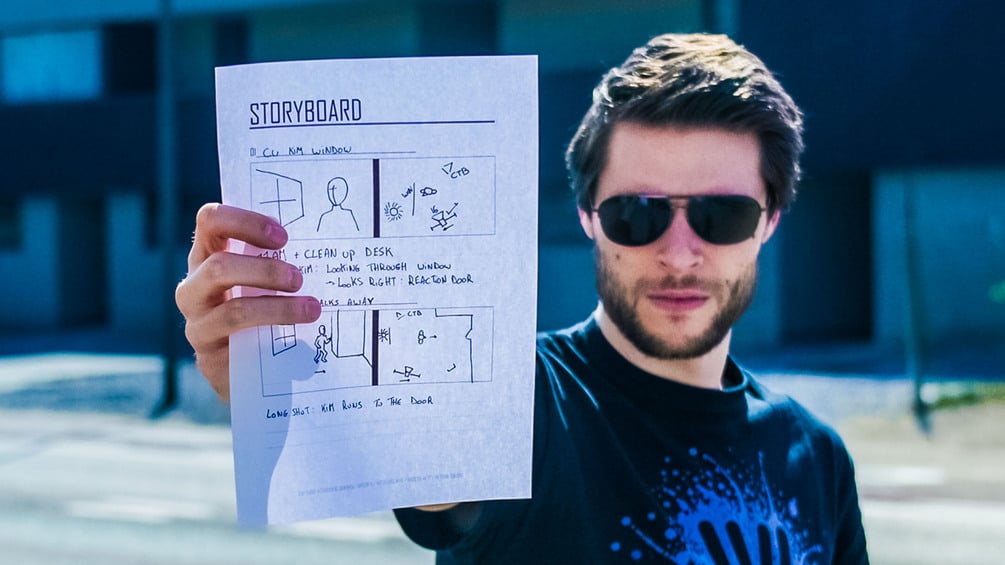 STORYBOARD
CU KIM WINDOW
CTB
AM + CLEAN UP DESK
KIM: LOOKING THROUGH WINDOW
→ LOOKS RIGHT: REACTION DOOR
AWAY
CTB
LONG SHOT: KIM RUNS TO THE DOOR